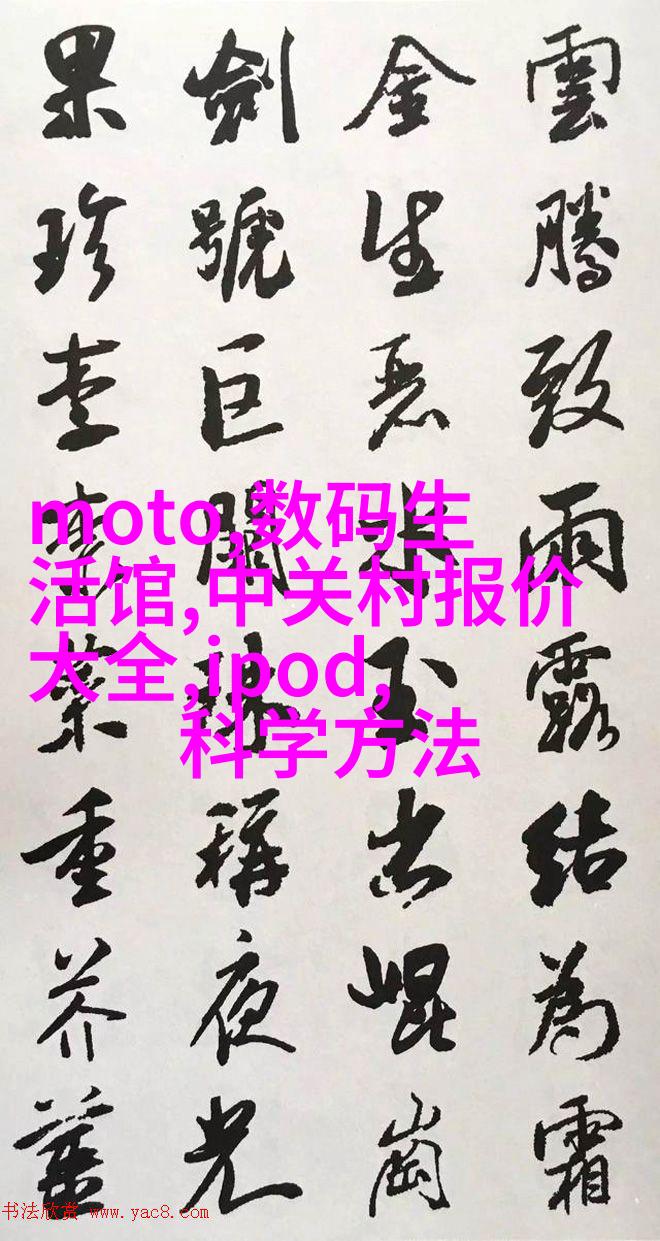 雲騰致雨露結為霜
金生麗水玉出崐崗
劍號巨闕珠稱夜光
果珍李柰菜重芥薑
moto,数码生
活馆,中关村报价
大全,ipod,
科学方法
书法欣赏 www.yac8.com